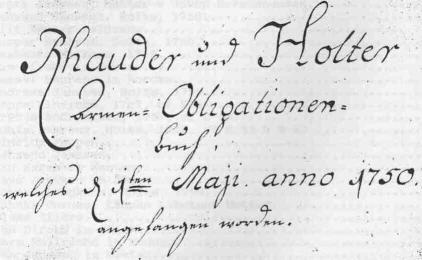 Rhauder und Holter
armen= Obligationen=
buch.
welches d. 1ten Maji. anno 1750.
angefangen worden.